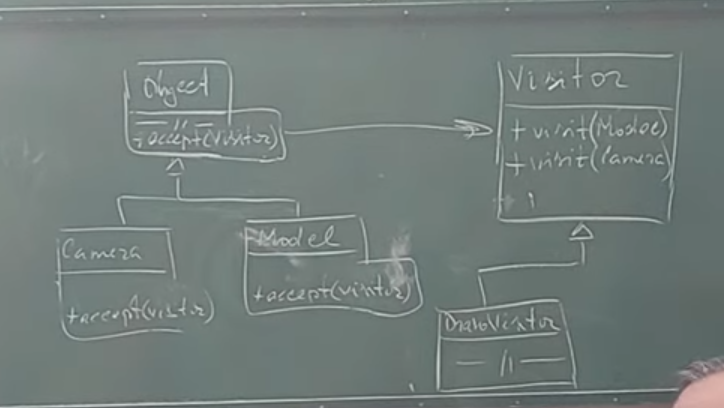 Object
— ıı —
+accept(Visitor)
Visitor
+ visit(Model)
+ visit(Camera)
⋮
Camera
+accept(visitor)
Model
+accept(visitor)
DrawVisitor
— ıı —